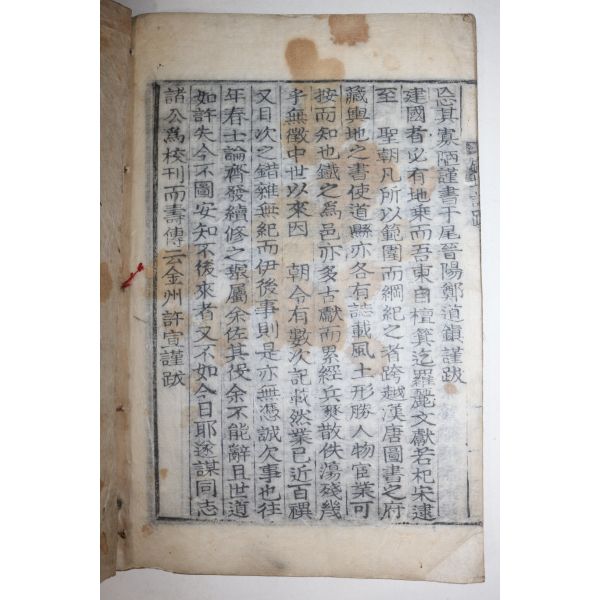 忘其寡陋謹書于尾晉陽鄭道鎭謹跋
建國者必有地乘而吾東自檀箕迄羅麗文獻若杞宋逮
至 聖朝凡所以範圍而綱紀之者跨越漢唐圖書之府
藏輿地之書使道縣亦各有誌載風土形勝人物官業可
按而知也鐵之爲邑亦多古獻而累經兵燹散佚蕩殘幾
乎無徵中世以來因 朝令有數次記載然業已近百禩
又目次之錯雜無紀而伊後事則是亦無憑誠欠事也往
年春士論齊發續修之擧屬余佐其役余不能辭且世道
如許失今不圖安知不後來者又不如今日耶遂謀同志
諸公爲校刊而壽傳云金州許寅謹跋